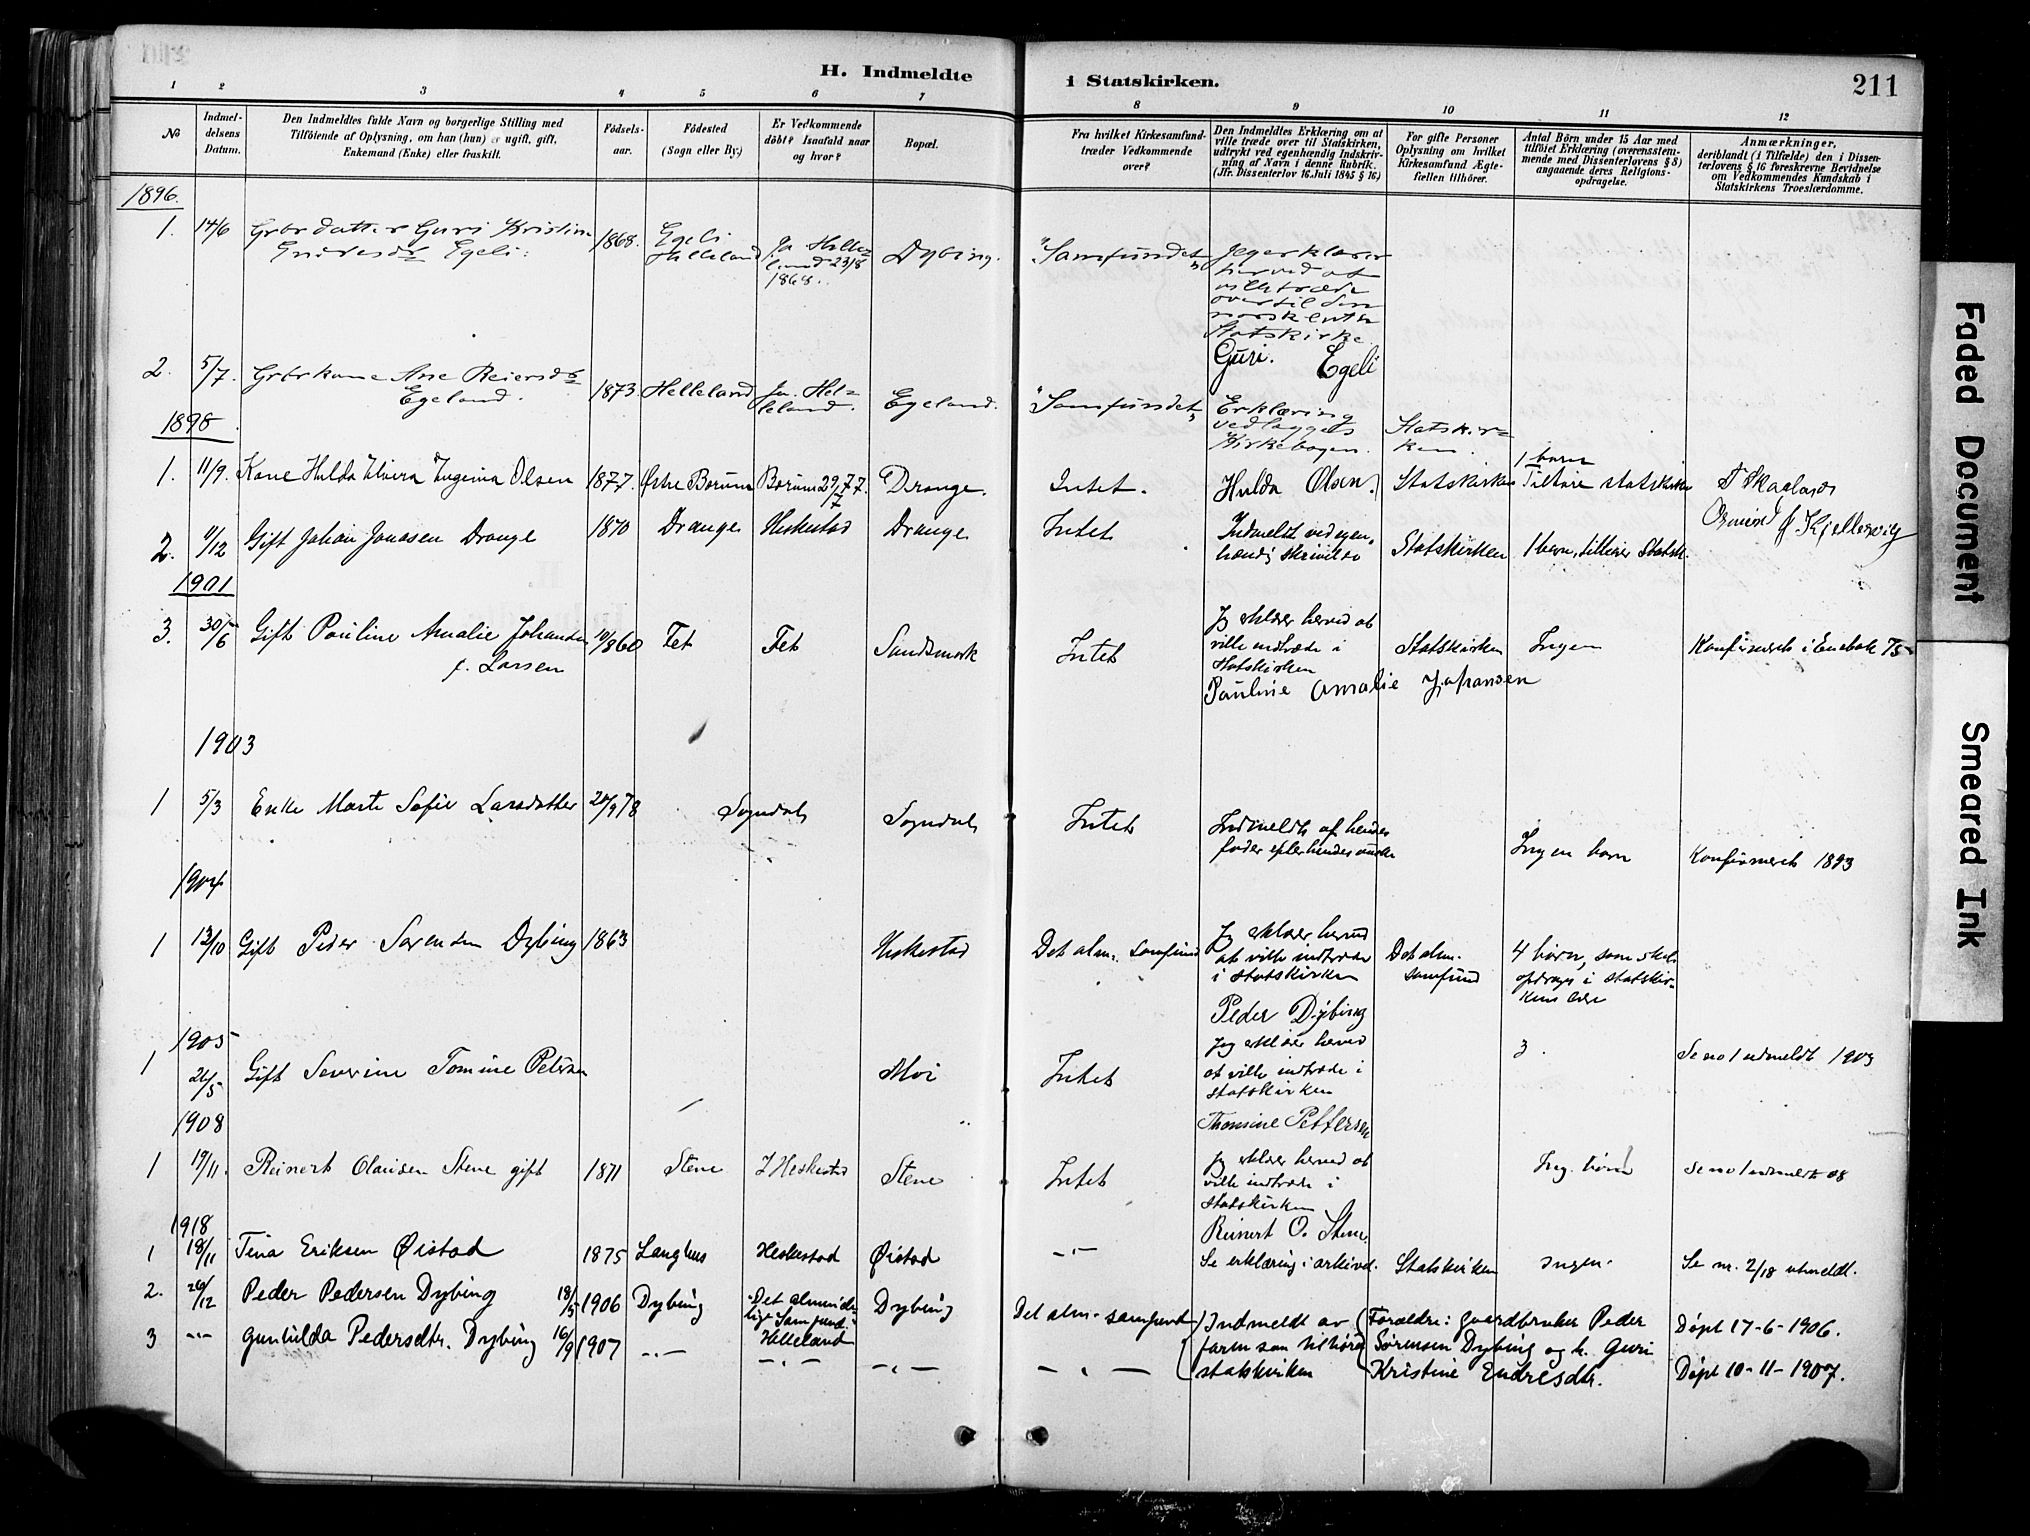 H. Indmeldte i Statskirken. 211
1 2 3 4 5 6 7 8 9 10 11 12
No
Indmeldelsens Datum.
Den Indmeldtes fulde Navn og borgerlige Stilling med Tilføiende af Oplysning, om han (hun) er ugift, gift, Enkemand (Enke) eller fraskilt.
Fødselsaar.
Fødested (Sogn eller By.)
Er Vedkommende döbt? Isaafald naar og hvor?
Bopæl.
Fra hvilket Kirkesamfund træder Vedkommende over?
Den Indmeldtes Erklæring om at ville træde over til Statskirken, udtrykt ved egenhændig Indskrivning af Navn i denne Rubrik. (Jfr. Dissenterlov 16. Juli 1845 § 16)
For gifte Personer Oplysning om hvilket Kirkesamfund Ægtefællen tilhörer.
Antal Börn under 15 Aar med tilföiet Erklæring (overensstemmende med Dissenterlovens § 8) angaaende deres Religionsopdragelse.
Anmærkninger, deriblandt (i Tilfælde) den i Dissenterlovens § 16 foreskrevne Bevidnelse om Vedkommendes Kundskab i Statskirkens Troeslærdomme.
1896.
1. 14/6 Grbrdatter Guri Kristine 1868. Egeli Ja. Helle- Dybing. "Samfundet" Jeg erklærer
Endresdr Egeli. Helleland land 23/8 herved at
1868. ville træde
over til den
norsk luth
Statskirke
Guri. Egeli
2. 5/7. Grbrkone Ane Reiersdr 1873. Helleland Ja. Hel- Egeland. "Samfundet" Erklæring
Egeland. leland. vedlagges Statskir-
Kirkebogen. ken.
1898
1 barn
1. 11/9. Kone Hulda Elvera Ingenia Olsen 1877. Østre Borum Borum 29/7 77. Drange. Intet. Hulda Olsen. Statskirken Tilhøre statskirken
2. 11/12 Gift Johan Jonassen Drange 1870 Drange Heskestad Drange Intet Indmeldt ved egen-
hændig skrivelse Statskirken 1 barn, tilhører Statsk.
Kjellesvig
1901
3. 30/6 Gift Pauline Amalie Johansen 10/8 60 Fet Fet Sandsmork Intet Jeg erklærer herved at
f. Larsen ville indtræde i Statskirken Ingen Konfirmeret i Enebak 75
Statskirken
Pauline Amalie Johansen
1903
1 5/3 Enke Marte Sofie Larsdatter 78 Sogndal Sogndal Intet Indmeldt af hendes
fader efter hendes ønske Ingen barn Konfirmeret 1893
1904
1 13/10 Gift Peder Sørensen Dybing 1863 Heskestad Det alm. samfund Jeg erklærer herved Det alm. 4 børn, som skal
at ville indtræde samfund opdrages i statskir-
i statskirken kens lære
Peder Dybing
1905
1 26/5 Gift Severine Tomine Petersen Moi Intet Jeg erklærer herved 3. Se no 1 udmeldt 1903
at ville indtræde i
statskirken
Thomine Pettersen
1908
1 19/11. Reinert Olausen Stene gift 1871 Stene I Heskestad Stene Intet Jeg erklærer herved at Ing. børn Se no 1 udmeldt 08
ville indtræde i
statskirken
Reinert O. Stene.
1918
1 18/11 Tina Eriksen Øistad 1875 Langhus Heskestad Øistad -"- Se erklæring i arkivet. Statskirken ingen. Se nr. 2/18 utmeldt.
2. 26/12 Peder Pedersen Dybing 18/5 1906 Dybing Det alminde- Dybing Det alm. samfund Indmeldt av Forældre: gaardbruker Peder Døpt 17-6-1906.
lige Samfund i
Helleland
3 -"- Gunhilda Pedersdtr. Dybing 16/9 1907 -"- -"- -"- -"- faren som tilhører Sørensen Dybing og h. Guri
statskirken Kristine Endresdtr. Døpt 10-11-1907.
Faded Document
Smeared Ink